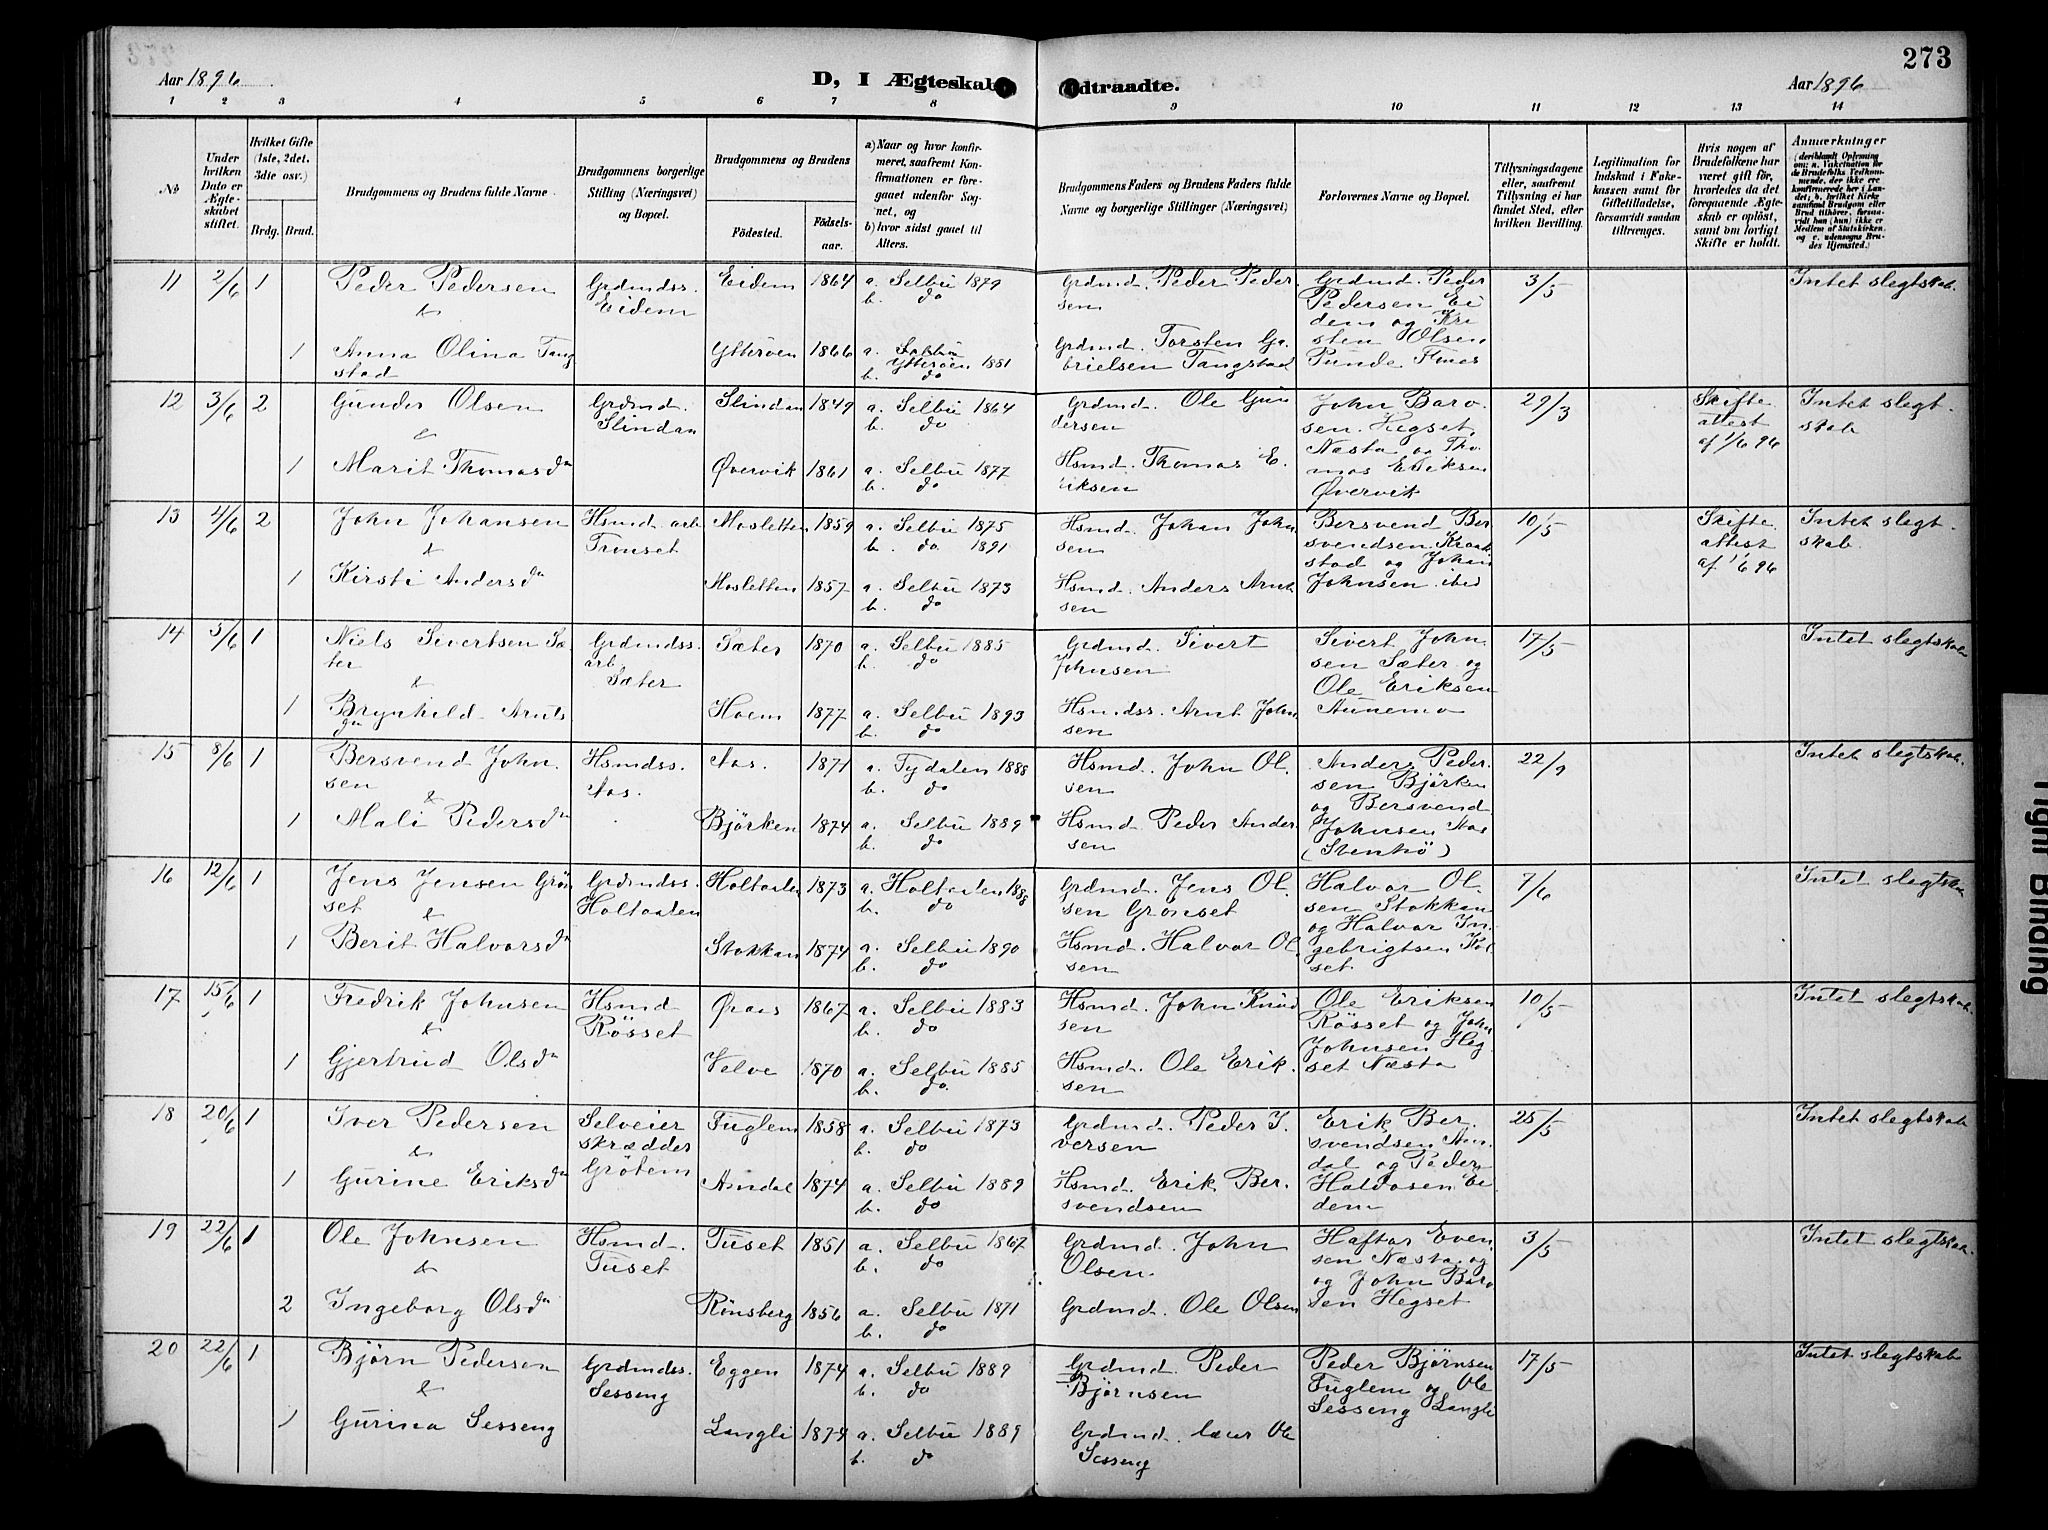 273
Aar 1896. D, I Ægteskab Indtraadte. Aar 1896
1 2 3 4 5 6 7 8 9 10 11 12 13 14
No
Under hvilken Dato er Ægteskabet stiftet.
Hvilket Gifte (1ste, 2det, 3die osv.)
Brdg. Brud.
Brudgommens og Brudens fulde Navne.
Brudgommens borgerlige Stilling (Næringsvei) og Bopæl.
Brudgommens og Brudens
Födested. Födselsaar.
a) Naar og hvor konfirmeret, saafremt Konfirmationen er foregaaet udenfor Sognet, og
b) hvor sidst gaaet til Alters.
Brudgommens Faders og Brudens Faders fulde Navne og borgerlige Stillinger (Næringsvei)
Forlovernes Navne og Bopæl.
Tillysningsdagene eller, saafremt Tillysning ei har fundet Sted, efter hvilken Bevilling.
Legitimation for Indskud i Enkekassen samt for Giftetilladelse, forsaavidt saadan tiltrænges.
Hvis nogen af Brudefolkene har været gift før, hvorledes da det foregaaende Ægteskab er opløst, samt om lovligt Skifte er holdt.
Anmærkninger
11 2/6 1 Peder Pedersen & Grdmdss. Eidem Eidem 1864 a. Selbu 1879 b. do Grdmd. Peder Pedersen Grdmd. Peder Pedersen Eidem og Kristen Olsen 3/5 Intet slegtskab.
1 Anna Olina Tangstad Ytterøen 1866 a. Ytterøen 1881 b. do Grdmd. Torsten Gabrielsen Tangstad
12 3/6 2 Gunder Olsen & Grdmd. Slindan Slindan 1849 a. Selbu 1864 b. do Grdmd. Ole Gundersen John Barosen Hegset Næsta og Thomas Eriksen Øvervik 29/3 Skifteattest af 1/6 96 Intet slegtskab
1 Marit Thomasdn Øvervik 1861 a. Selbu 1877 b. do Hsmd. Thomas Eriksen
13 4/6 2 John Johansen & Hsmd. arb. Tronset Mosletten 1859 a. Selbu 1875 b. do 1891 Hsmd. Johan Johnsen Bersvend Bersvendsen Kraakstad og Johan Johnsen ibid 10/5 Skifteattest af 1/6 96 Intet slegtskab.
1 Kirsti Andersdn Mosletten 1857 a. Selbu 1873 b. do Hsmd. Anders Arntsen
14 5/6 1 Niels Sivertsen Sæter & Grdmdss. arb. Sæter Sæter 1870 a. Selbu 1885 b. do Grdmd. Sivert Johnsen Sivert Johnsen Sæter og Ole Eriksen Aunemo 17/5 Intet slegtskab
1 Brynhild Arntsdn Hoem 1877 a. Selbu 1893 b. do Hsmdss. Arnt Johnsen
15 8/6 1 Bersvend Johnsen & Hsmdss. Aas. Aas. 1871 a. Tydalen 1888 b. do Hsmd. John Olsen Anders Pedersen Bjørken og Bersvend Johnsen Aas (Svenhö) 22/9 Intet slegtskab.
1 Mali Pedersdn Bjørken 1874 a. Selbu 1889 b. do Hsmd Peder Andersen
16 12/6 1 Jens Jensen Grönset & Grdmdss. Holtaalen Holtaalen 1873 a. Holtaalen 1888 b. do Grdmd. Jens Olsen Grönset Halvor Olsen Stokkan og Halvor Ingebrigtsen 7/6 Intet slegtskab
1 Berit Halvorsdn Stokkan 1874 a. Selbu 1890 b. do Hsmd. Halvor Olsen
17 15/6 1 Fredrik Johnsen & Hsmd Røsset Øraas 1867 a. Selbu 1883 b. do Hsmd. John Knudsen Ole Eriksen Røsset og John Johnsen Hegset Næsta 10/5 Intet slegtskab.
1 Gjertrud Olsdn Velve 1870 a. Selbu 1885 b. do. Hsmd. Ole Eriksen
18 20/6 1 Iver Pedersen & Selveier skrædder Grötem Fuglem 1858 a. Selbu 1873 b. do Grdmd. Peder Iversen Erik Bersvendsen Amdal og Peder Haldosen Eidem 25/5 Intet slegtskab
1 Gurine Eriksdn Amdal 1874 a. Selbu 1889 b. do Hsmd. Erik Bersvendsen
19 22/6 1 Ole Johnsen & Hsmd. Tuset Tuset 1851 a. Selbu 1867 b. do Grdmd. John Olsen. Haftor Evensen Næsta og og John Barosen Hegset 3/5 Intet slegtskab.
2 Ingeborg Olsdn Rönsberg 1856 a. Selbu 1871 b. do Grdmd. Ole Olsen
20 22/6 1 Bjørn Pedersen & Grdmdss. Sesseng Eggen 1874 a. Selbu 1889 b. do Grdmd. Peder Bjørnsen Peder Bjørnsen Fuglem og Ole Sesseng Langli 17/5 Intet slegtskab
1 Gurina Sesseng Langli 1874 a. Selbu 1889 b. do Grdmd. lærer Ole Sesseng
Tight Binding